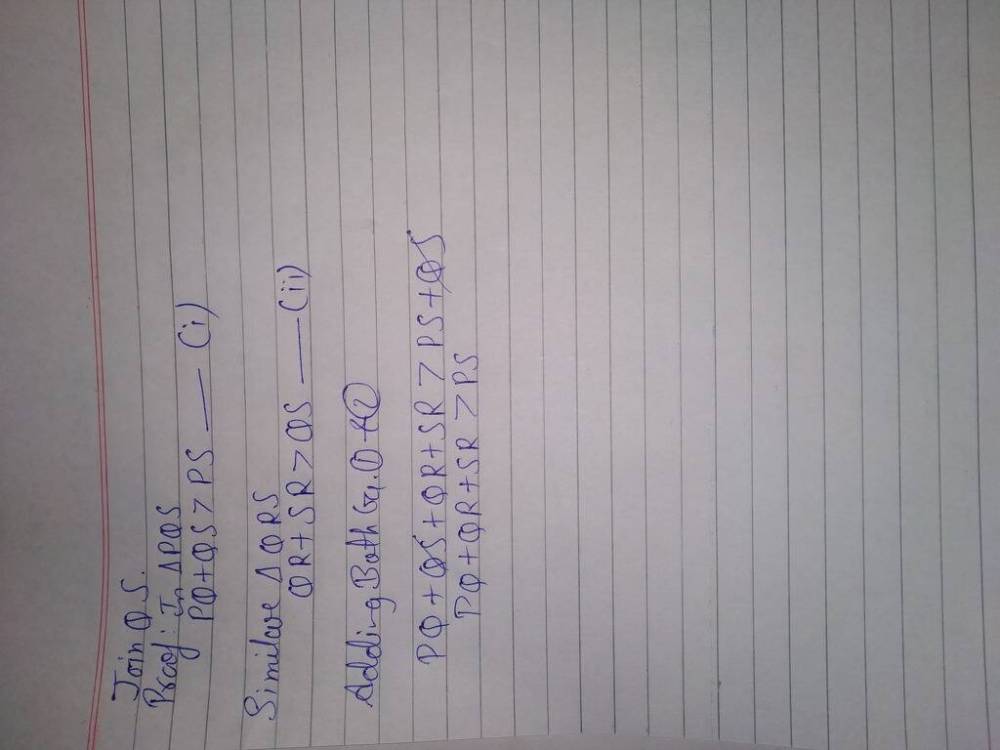 Join QS.
Proof: In ΔPQS
PQ+QS>PS — (i)
Similare ΔQRS
QR+SR>QS — (ii)
Adding Both Eq. ① & ②
PQ+QS+QR+SR>PS+QS
PQ+QR+SR>PS